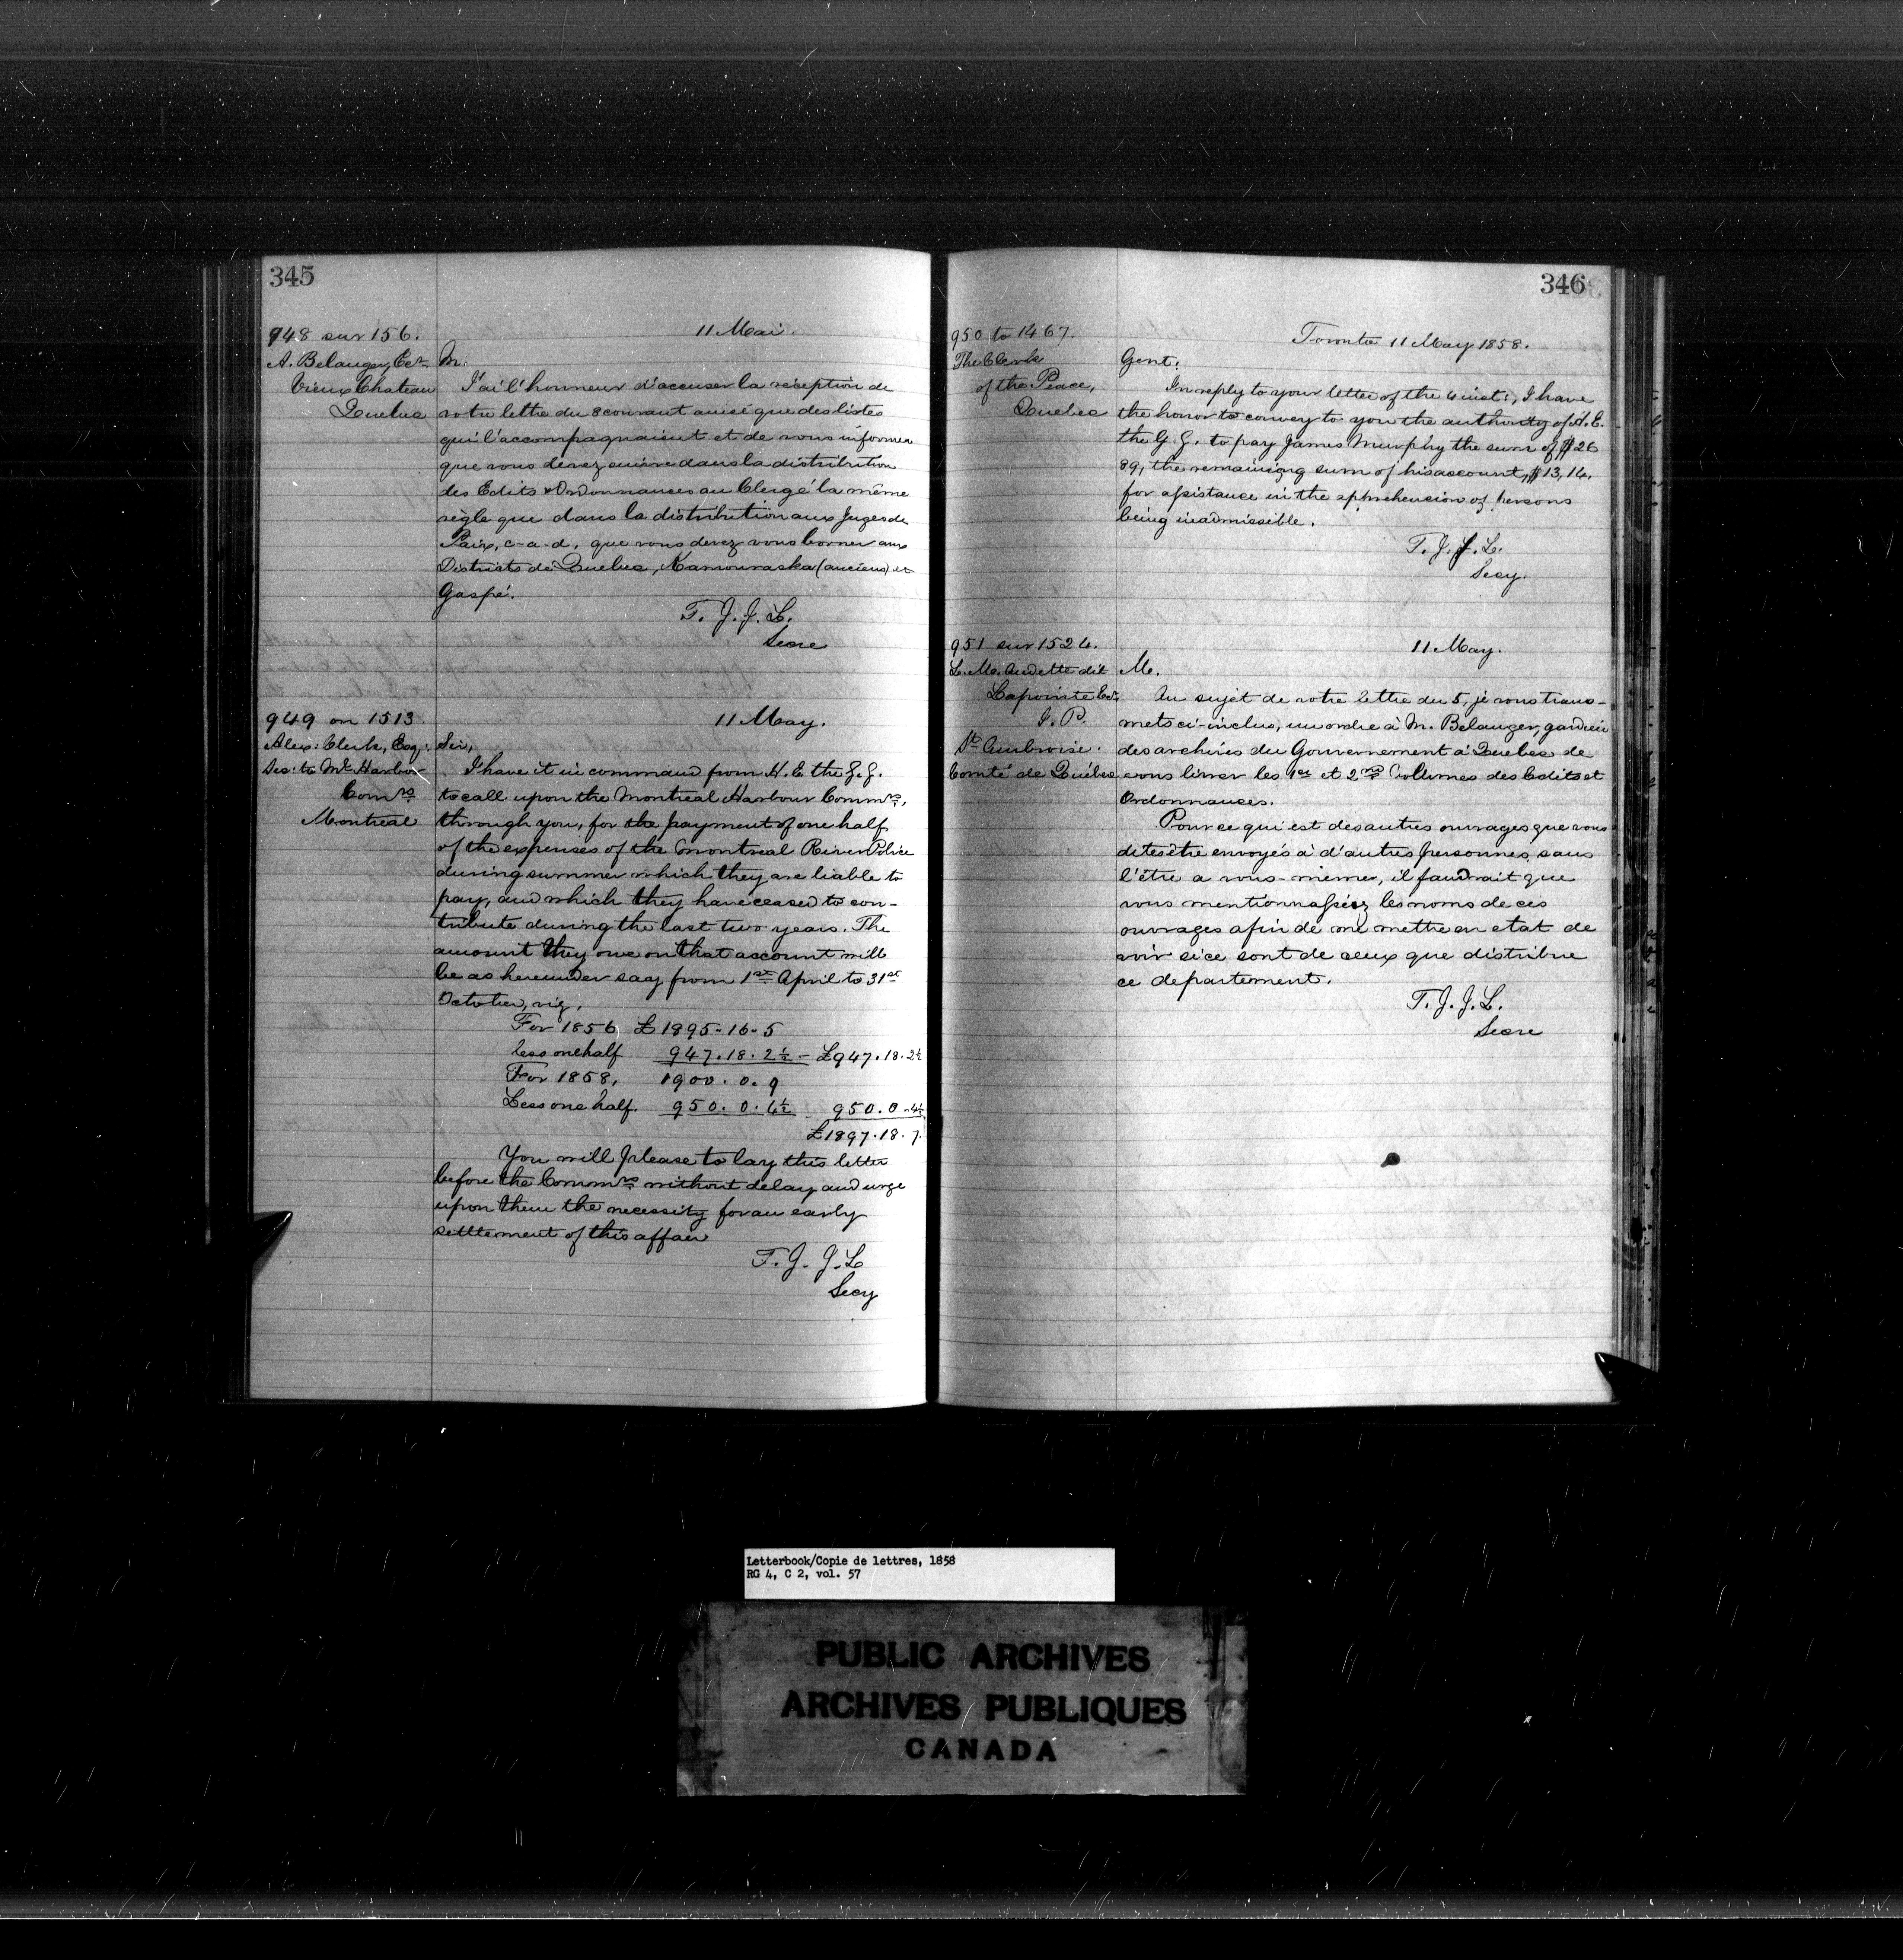 345
948 sur 156.
11 Mai.
A. Belanger, Ecr
Vieux Chateau
Quebec
M.
J'ai l'honneur d'accuser la réception de
votre lettre du 8 courant ainsi que des listes
qui l'accompagnaient et de vous informer
que vous devez suivre dans la distribution
des Edits & Ordonnances au Clergé la même
règle que dans la distribution aux Juges de
Paix, c-a-d. que vous devez vous borner aux
Districts de Quebec, Kamouraska (anciens) et
Gaspé.
T. J. J. L.
Secre
949 on 1513
11 May.
Alex: Clerk, Esq:
Sec: to Ml Harbor
Comrs
Montreal
Sir,
I have it in command from H. E the G. G.
to call upon the Montreal Harbour Commrs,
through you, for the payment of one half
of the expenses of the Montreal River Police
during summer which they are liable to
pay, and which they have ceased to con-
tribute during the last two years. The
amount they owe on that account will
be as hereunder say from 1st April to 31st
October, viz.
For 1856 £1895-16-5
less one half 947.18.2½ - £947.18.2½
For 1858, 1900.0.9
Less one half. 950.0.4½ 950.0-4½
£1897.18.7.
You will please to lay this letter
before the Commrs without delay and urge
upon them the necessity for an early
settlement of this affair
T. J. J. L
Secy
346
950 to 1467.
Toronto 11 May 1858.
The Clerk
of the Peace,
Quebec
Gent:
In reply to your letter of the 4 inst:, I have
the honor to convey to you the authority of H. E.
the G. G. to pay James Murphy the sum of $26
89, the remaining sum of his account, $13,14,
for assistance in the apprehension of persons
being inadmissible.
T. J. J. L.
Secy.
951 sur 1524.
11 May.
L. M. Audette dit
Lapointe Ecr,
J. P.
St Ambroise.
Comté de Québec
M.
Au sujet de votre lettre du 5, je vous trans-
mets ci-inclus, un ordre à M. Belanger, gardien
des archives du Gouvernement à Quebec de
vous livrer les 1er et 2nd Volumes des Edits et
Ordonnances.
Pour ce qui est des autres ouvrages que vous
dites être envoyés à d'autres personnes, sans
l'être a vous-même, il faudrait que
vous mentionnassiez les noms de ces
ouvrages afin de me mettre en etat de
voir si ce sont de ceux que distribue
ce departement.
T. J. J. L.
Secre
Letterbook/Copie de lettres, 1858
RG 4, C 2, vol. 57
PUBLIC ARCHIVES
ARCHIVES PUBLIQUES
CANADA